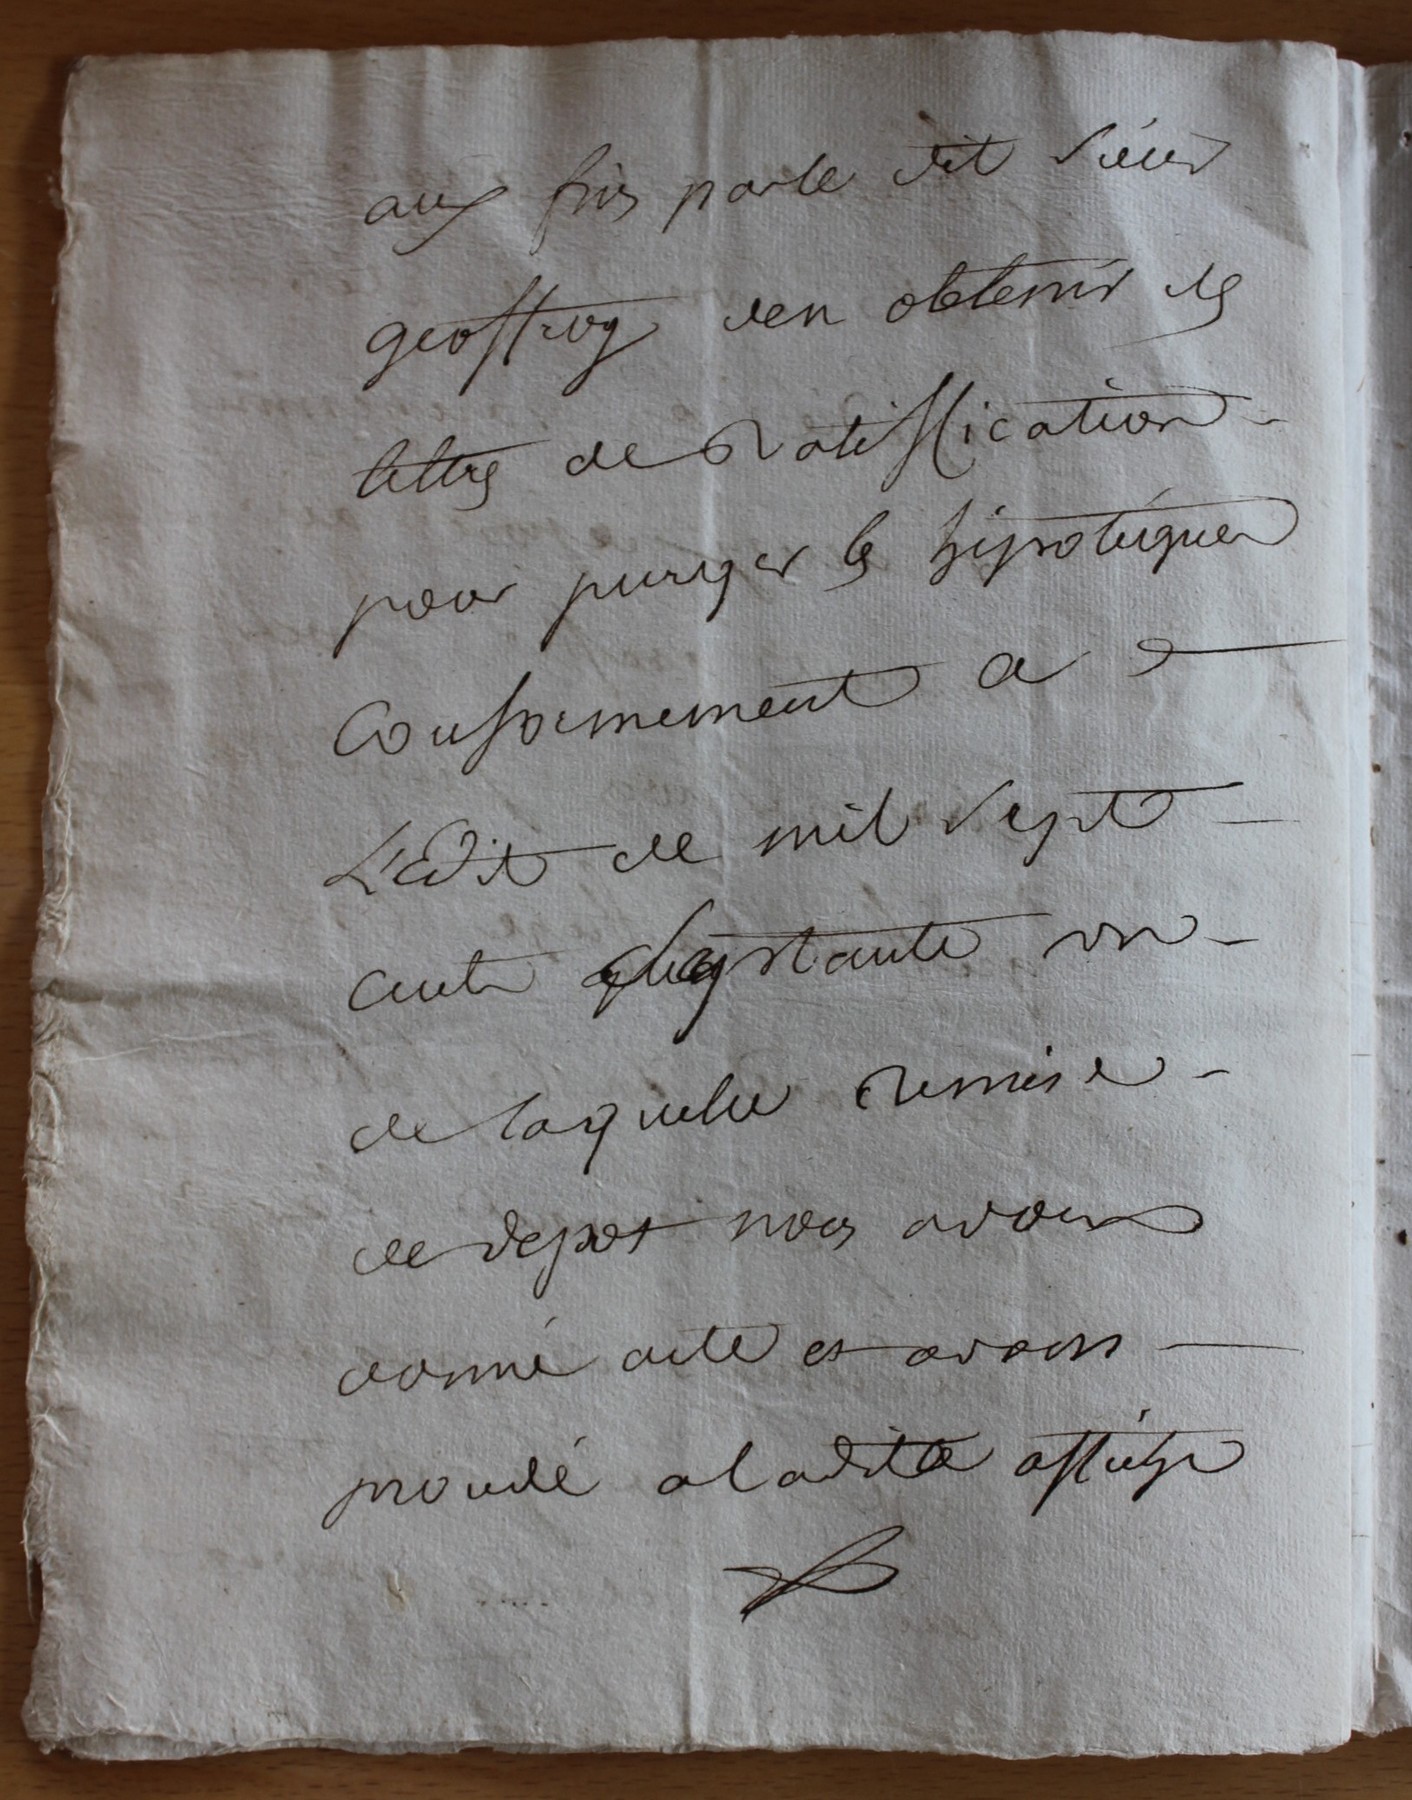 aux fins par le dit sieur
geoffroy den obtenir des
lettres de Ratiffication
pour purger les hipotéques
Conformement a
L'edit de mil sept
cent septante un
de laquelle Remise
de depot nous avons
donné acte et avons
procedé a ladite affiche